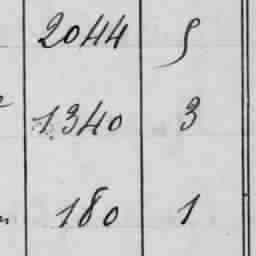 2044 5
1340 3
180 1